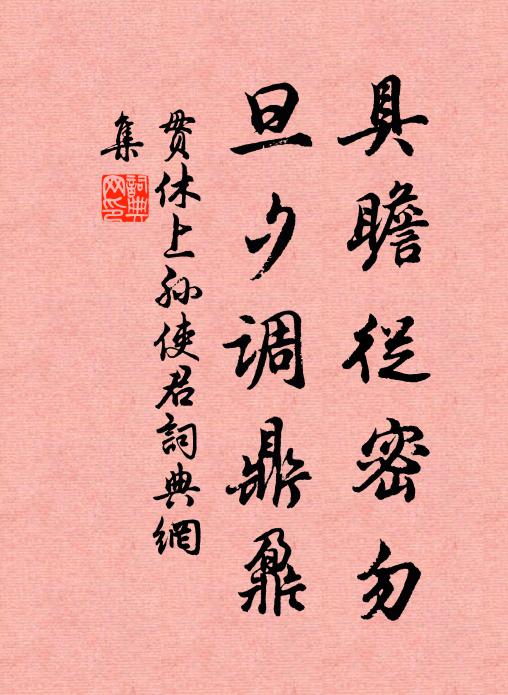 具瞻從密勿
旦夕調鼎鼐
貫休上孫使君詞典網
集
詞典
网印